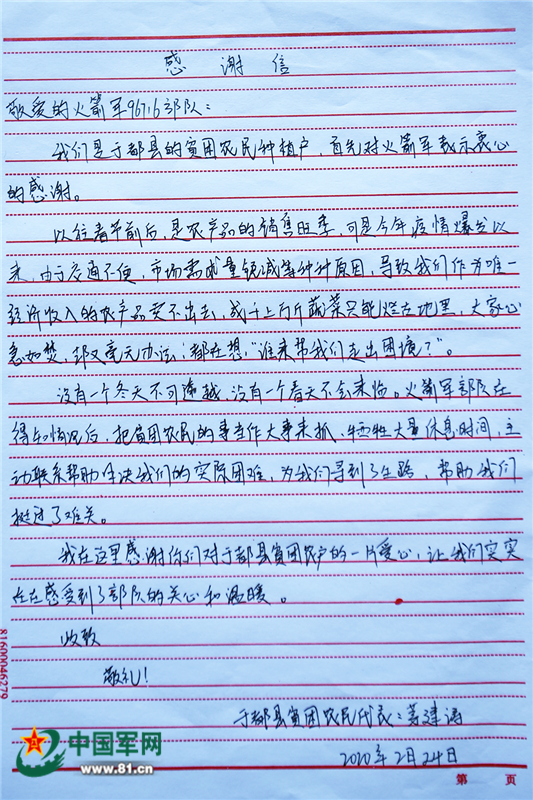 感谢信
敬爱的火箭军96716部队：
我们是于都县的贫困农民种植户，首先对火箭军表示衷心
的感谢。
以往春节前后，是农产品的销售旺季，可是今年疫情爆发以
来，由于交通不便，市场需求量锐减等种种原因，导致我们作为唯一
经济收入的农产品卖不出去，成千上万斤蔬菜只能烂在地里，大家心
急如焚，却又毫无办法；都在想，“谁来帮我们走出困境？”。
没有一个冬天不可逾越，没有一个春天不会来临。火箭军部队在
得知情况后，把贫困农民的事当作大事来抓，牺牲大量休息时间，主
动联系帮助解决我们的实际困难，为我们寻到了生路，帮助我们
挺过了难关。
我在这里感谢你们对于都县贫困农户的一片爱心，让我们实实
在在感受到了部队的关心和温暖。
此致
敬礼！
于都县贫困农民代表：建
2020年2月24日
81600046279
中国军网
www.81.cn
第 页